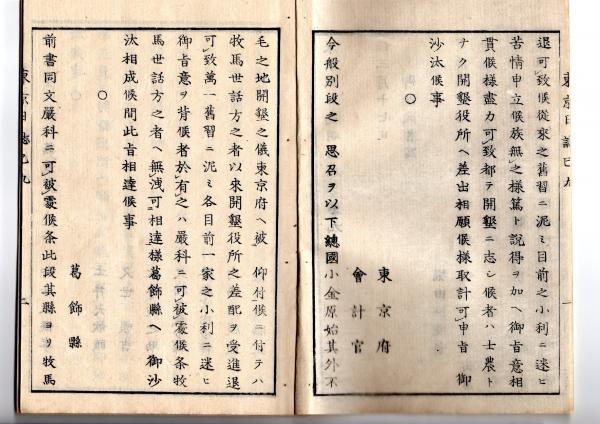 東京日誌己九
退可致候從來之舊習ニ泥ミ目前之小利ニ迷ヒ
苦情申立候族無之樣篤ト說得ヲ加ヘ御旨意相
貫候樣盡力可致都テ開墾ニ志シ候者ハ士農ト
ナク開墾役所ヘ差出相願候樣取計可申旨 御
沙汰候事
○
東京府
會計官
今般別段之 思召ヲ以下總國小金原始其外不
毛之地開墾之儀東京府ヘ被 仰付候ニ付テハ
牧馬世話方之者以來開墾役所之差配ヲ受進退
可致萬一舊習ニ泥ミ各目前一家之小利ニ迷ヒ
御旨意ヲ背候者於有之ハ嚴科ニ可被處候条牧
馬世話方之者ヘ無洩可相達樣葛飾縣ヘ 御沙
汰相成候間此旨相達候事
○
葛飾縣
前書同文嚴科ニ可被處候条此段其縣ヨリ牧馬
東京日誌己九
二